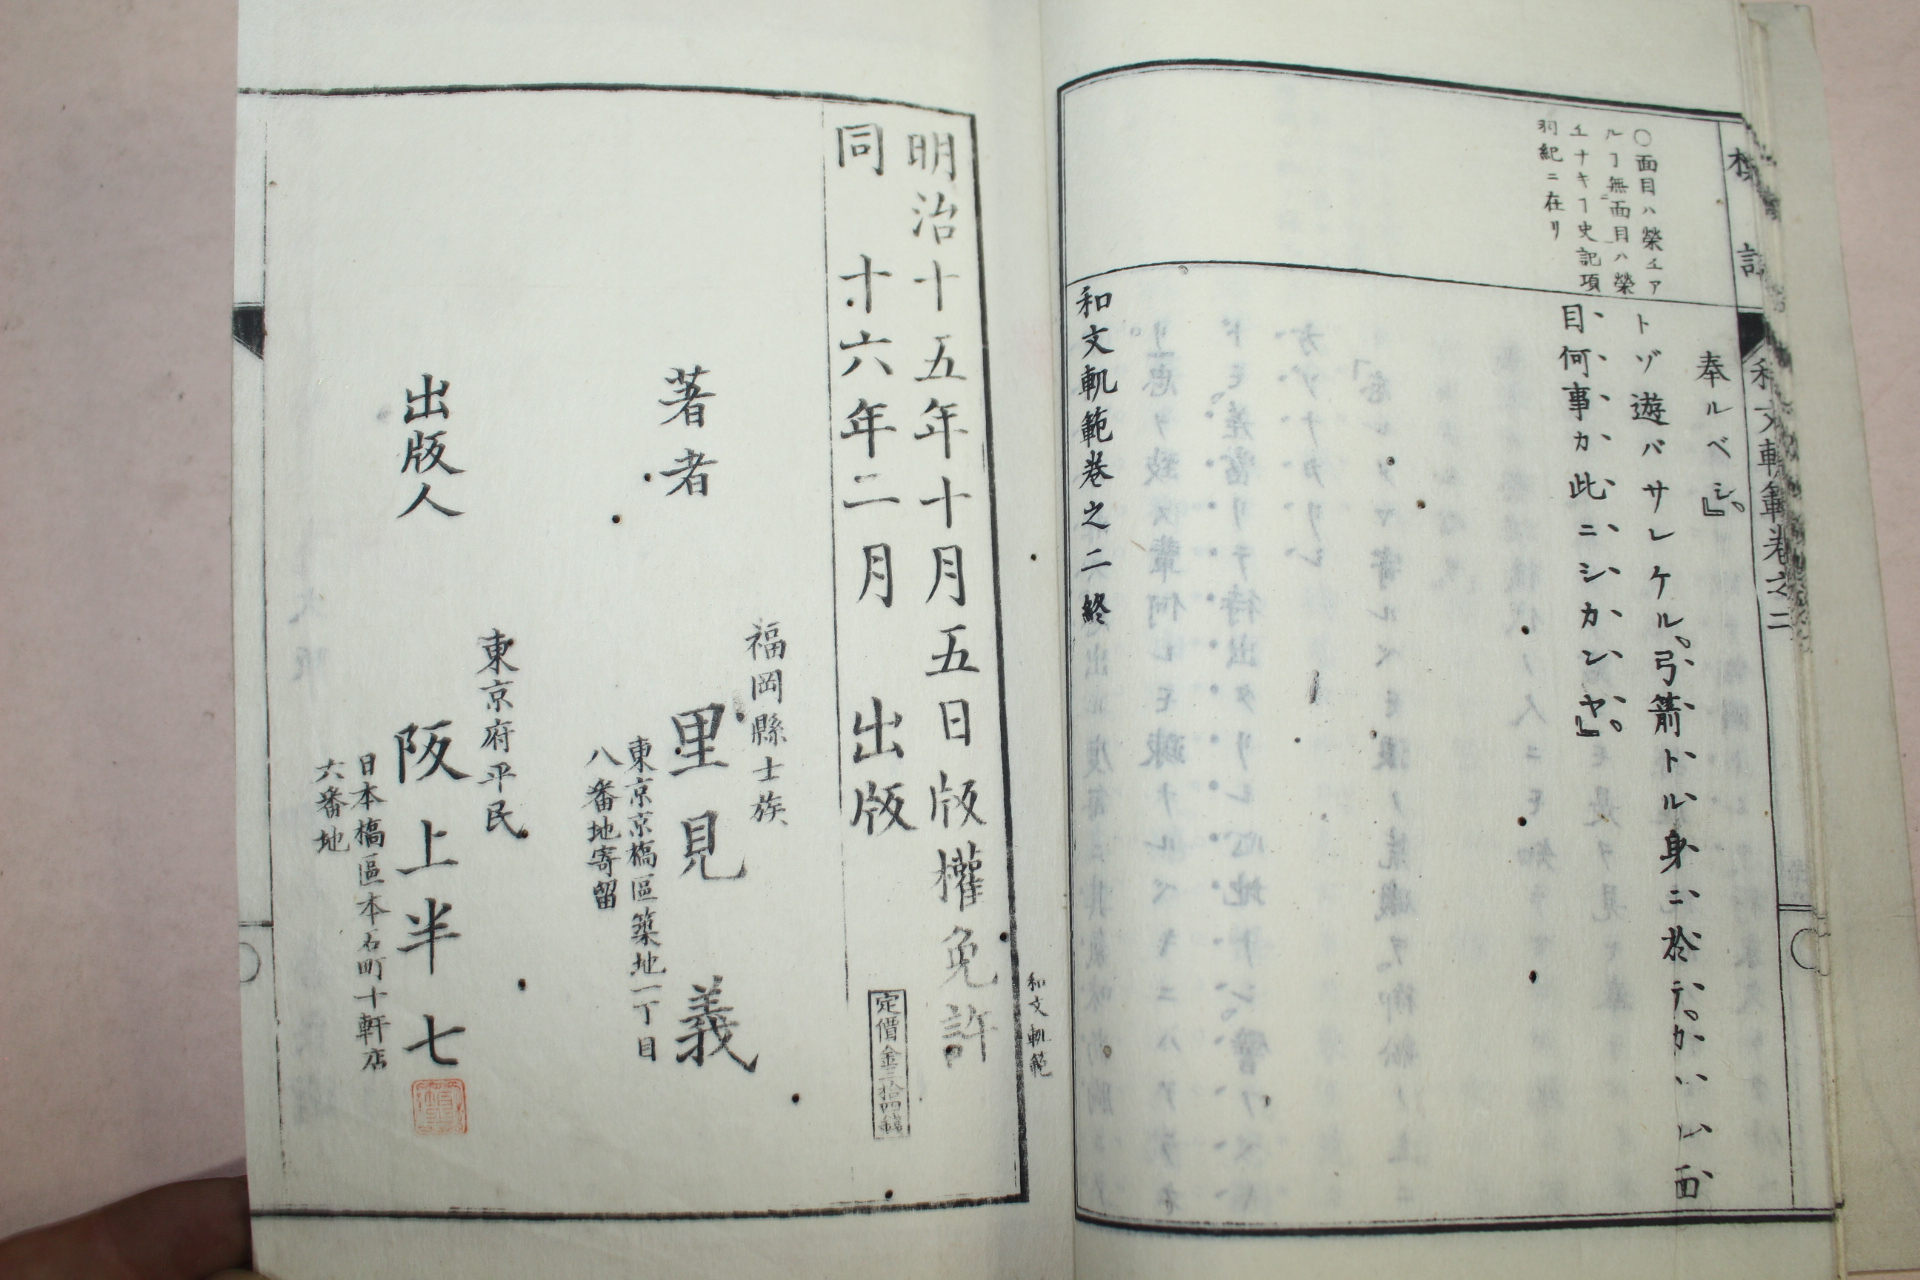 和文軌範卷之二
奉ルベシ。』
トゾ遊バサレケル。弓箭トル身ニ於テ、カヽル面
目何事カ此ニシカンヤ。』
〇面目ハ榮ヱア
ルヿ無面目ハ榮
ヱナキヿ史記項
羽紀ニ在リ
和文軌範卷之二終
和文軌範
明治十五年十月五日版權免許
同十六年二月出版
定價金三拾四錢
福岡縣士族
著者 里見義
東京京橋區築地一丁目
八番地寄留
東京府平民
出版人 阪上半七
日本橋區本石町十軒店
六番地